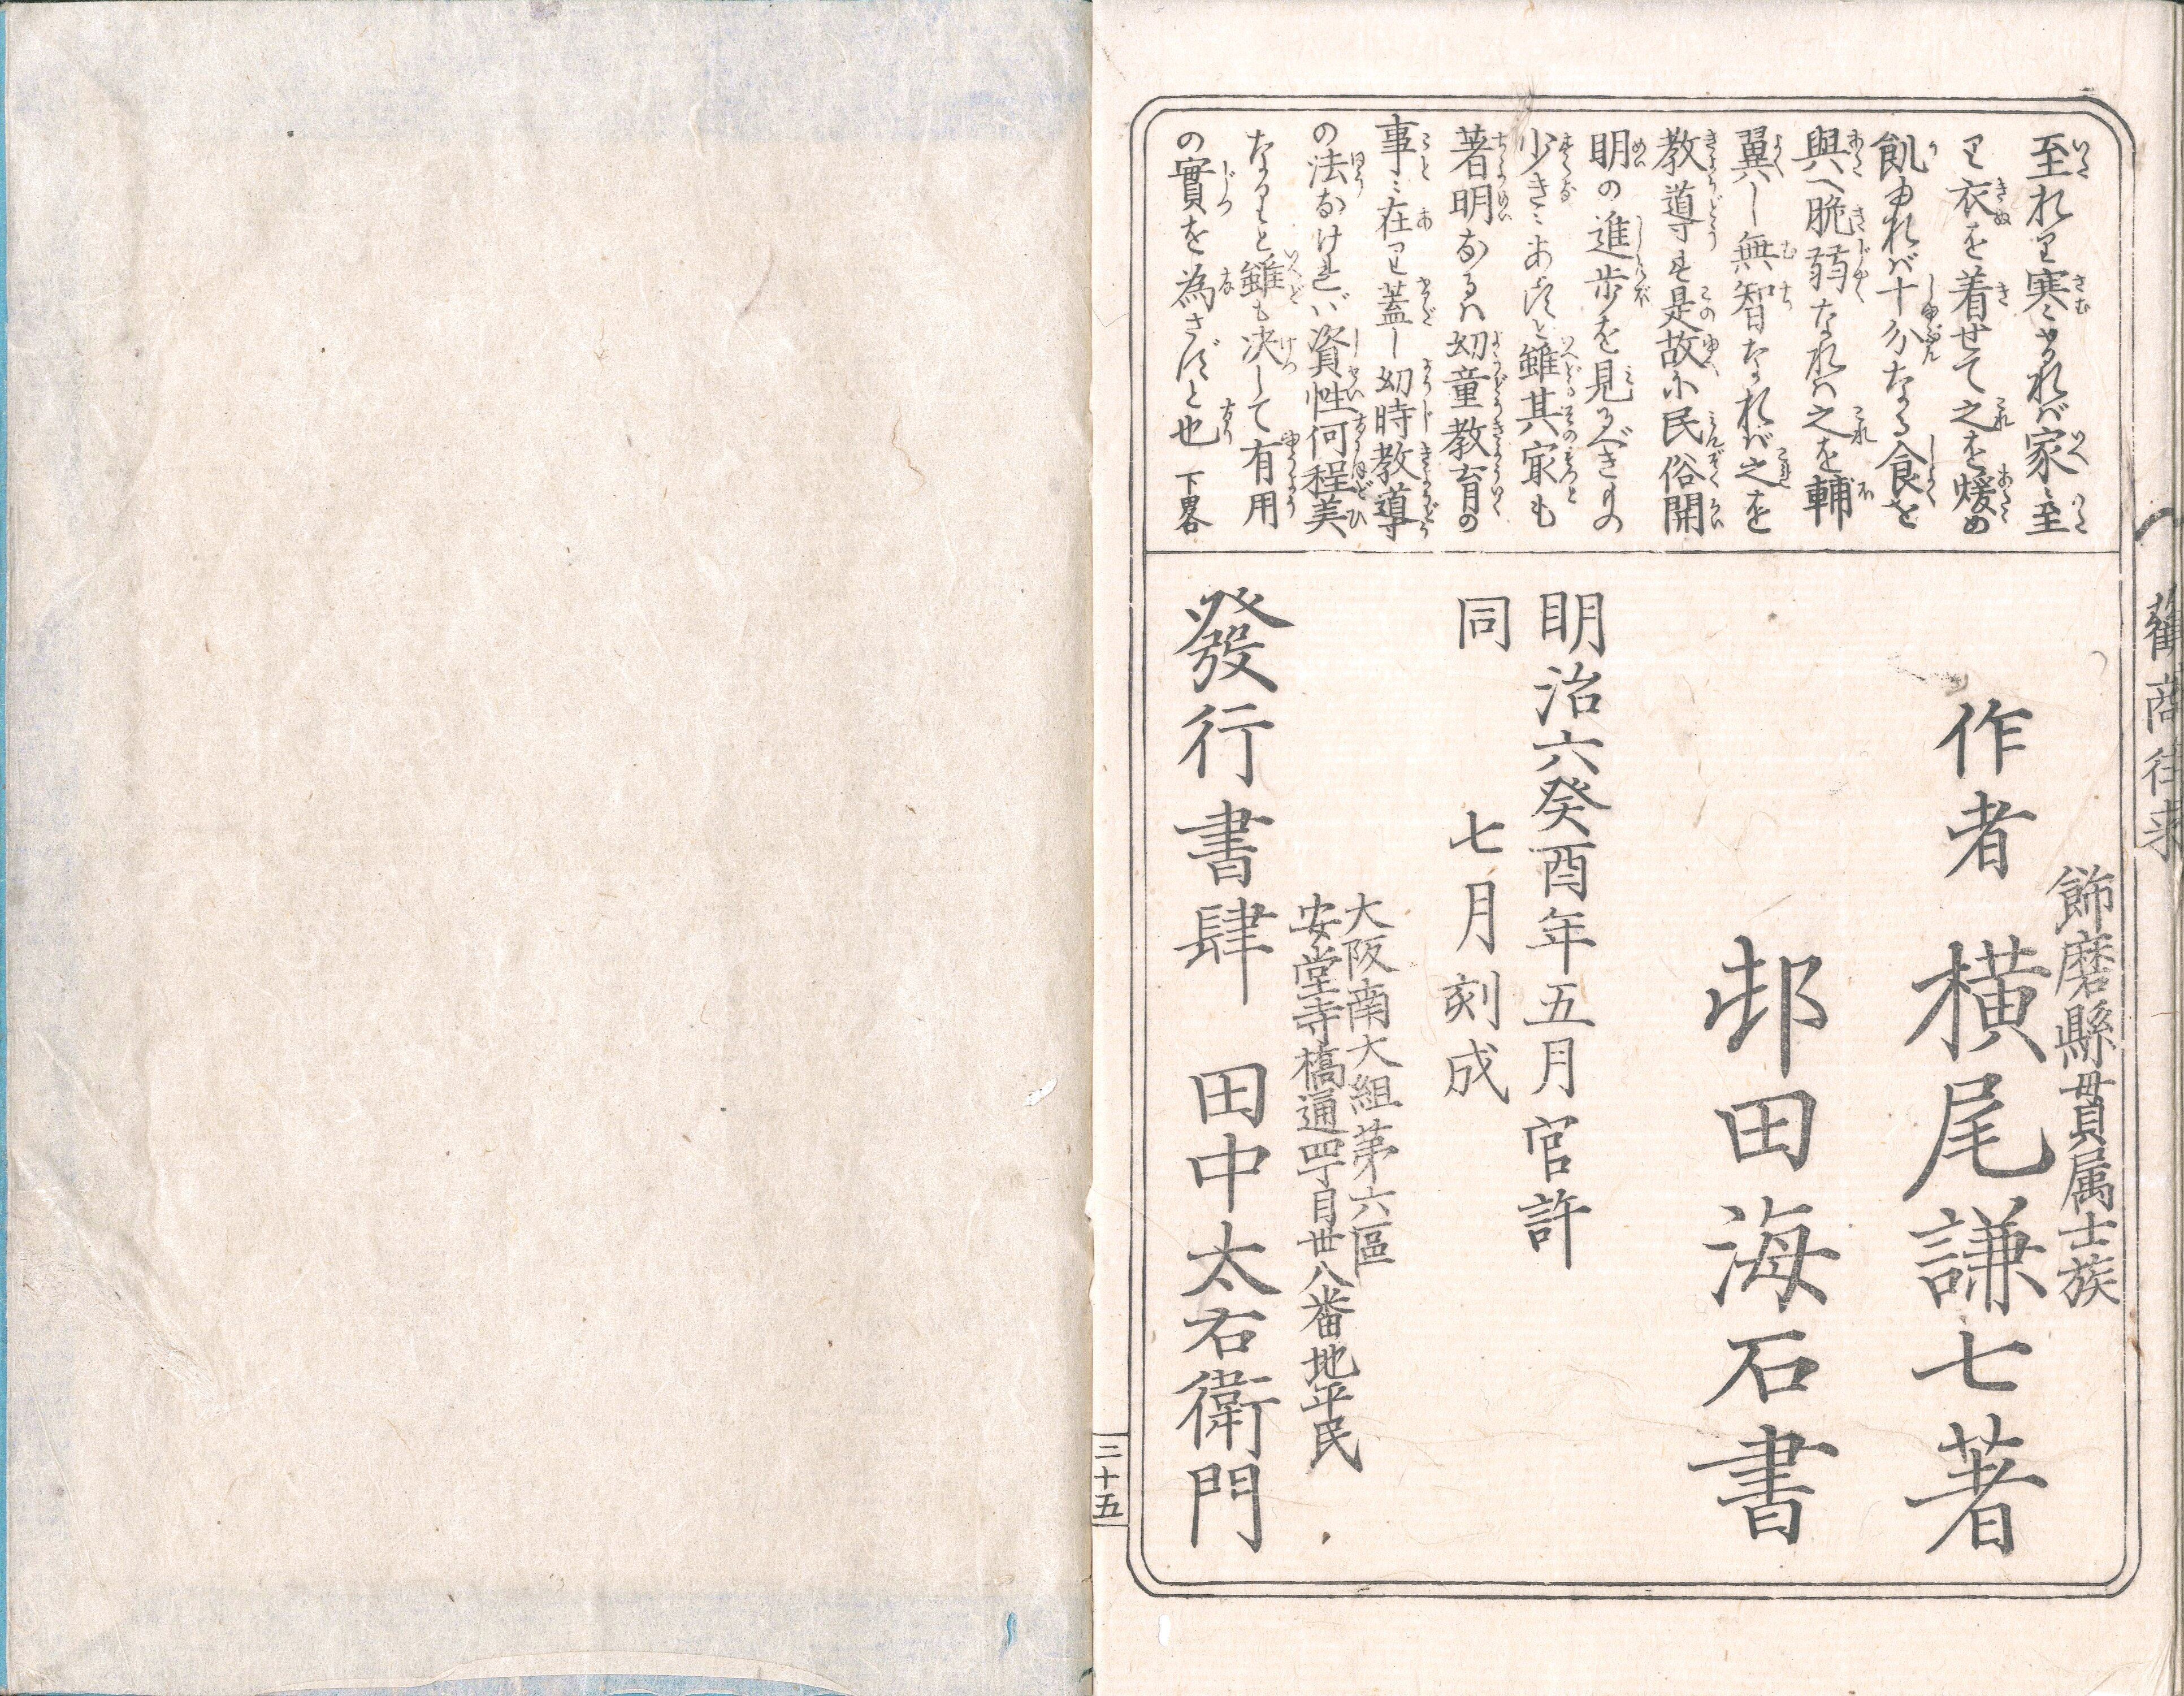 至れり寒ニなれバ家ニ至
り衣を着せて之を煖め
飢ゆれバ十分なる食を
與へ脆弱なれハ之を輔
翼し無智なれバ之を
教導す是故に民俗開
明の進歩を見るべきもの
少きニあらずと雖其㝡も
著明なるハ幼童教育の
事ニ在り蓋し幼時教導
の法なけれバ資性何程美
なりと雖も决して有用
の實を為さずと也 下畧
飾磨縣貫属士族
作者 横尾謙七著
邨田海石書
明治六癸酉年五月官許
同 七月刻成
大阪南大組苐六區
安堂寺橋通四丁目丗八番地平民
發行書肆 田中太右衛門
勸商往来
三十五